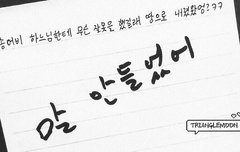 송어비 하느님한테 무슨 잘못을 했길래 땅으로 내려왔엉?ㅋㅋ
말 안들었어
TRIANGLEMOON